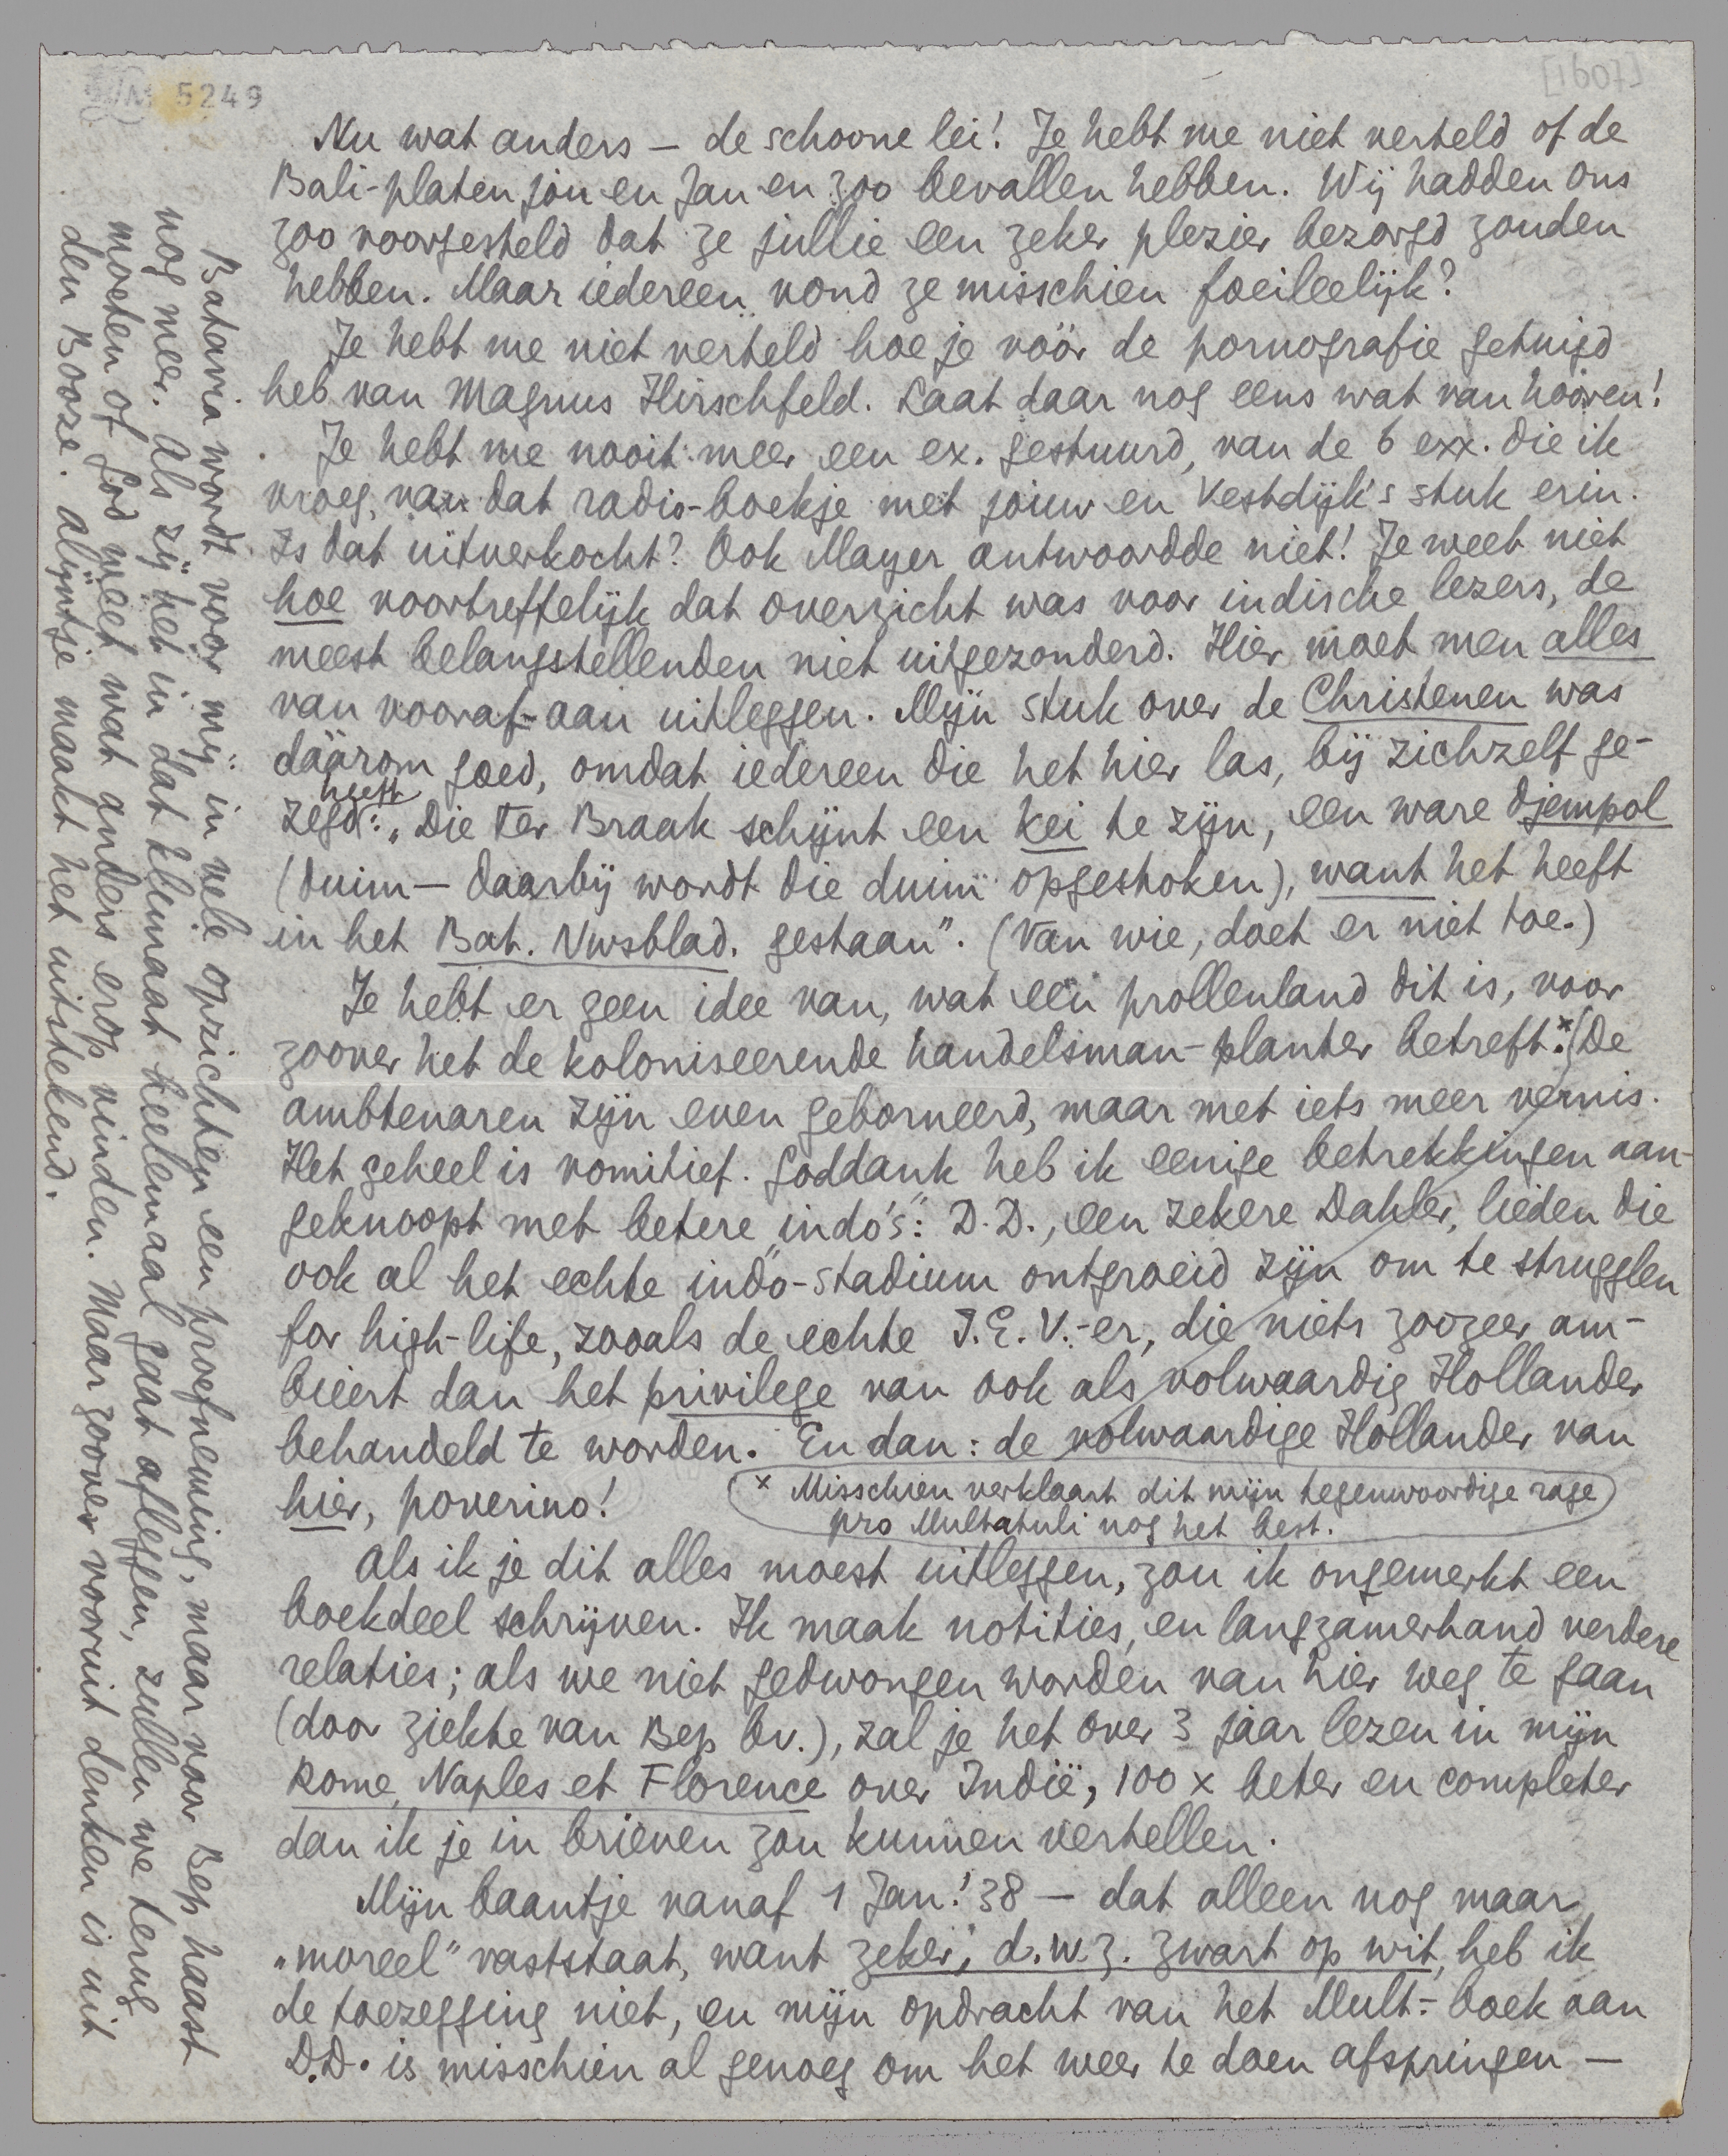 M 5249
[1607]
Nu wat anders – de schoone lei! Je hebt me niet verteld of de
Bali-platen jou en Jan en zoo bevallen hebben. Wij hadden ons
zoo voorgesteld dat ze jullie een zeker plezier bezorgd zouden
hebben. Maar iedereen vond ze misschien foeileelijk?
Je hebt me niet verteld hoe je vóór de pornografie getuigd
heb van Magnus Hirschfeld. Laat daar nog eens wat van hooren!
Je hebt me nooit meer een ex. gestuurd, van de 6 exx. die ik
vroeg, van dat radio-boekje met jouw en Vestdijk's stuk erin.
Is dat uitverkocht? Ook Mayer antwoordde niet! Je weet niet
hoe voortreffelijk dat overzicht was voor indische lezers, de
meest belangstellenden niet uitgezonderd. Hier moet men alles
van vooraf-aan uitleggen. Mijn stuk over de Christenen was
dáárom goed, omdat iedereen die het hier las, bij zichzelf ge-
zegd heeft: „Die ter Braak schijnt een kei te zijn, een ware djempol
(duim – daarbij wordt die duim opgestoken), want het heeft
in het Bat. Nwsblad. gestaan". (Van wie, doet er niet toe.)
Je hebt er geen idee van, wat een prollenland dit is, voor
zoover het de koloniseerende handelsman-planter betreft.* (De
ambtenaren zijn even geborneerd, maar met iets meer vernis.
Het geheel is vomitief. Goddank heb ik eenige betrekkingen aan-
geknoopt met betere „indo's": D.D., een zekere Dahler, lieden die
ook al het echte indo-stadium ontgroeid zijn om te strugglen
for high-life, zooals de echte I.E.V.-er, die niets zoozeer am-
bieert dan het privilege van ook als volwaardig Hollander
behandeld te worden. En dan: de volwaardige Hollander van
hier, poverino!
x Misschien verklaart dit mijn tegenwoordige rage
pro Multatuli nog het best.
Als ik je dit alles moest uitleggen, zou ik ongemerkt een
boekdeel schrijven. Ik maak notities, en langzamerhand verdere
relaties; als we niet gedwongen worden van hier weg te gaan
(door ziekte van Bep bv.), zal je het over 3 jaar lezen in mijn
Rome, Naples et Florence over Indië, 100 x beter en completer
dan ik je in brieven zou kunnen vertellen.
Mijn baantje vanaf 1 Jan.'38 – dat alleen nog maar
„moreel" vaststaat, want zeker, d.w.z. zwart op wit, heb ik
de toezegging niet, en mijn opdracht van het Mult.-boek aan
D.D. is misschien al genoeg om het weer te doen afspringen –
Batavia wordt voor mij in vele opzichten een proefneming, maar voor Bep haast
nog meer. Als zij het in dat klimaat heelemaal gaat afleggen, zullen we terug
moeten of God weet wat anders erop vinden. Maar zoover vooruit denken is uit
den Booze. Alijntje maakt het uitstekend.